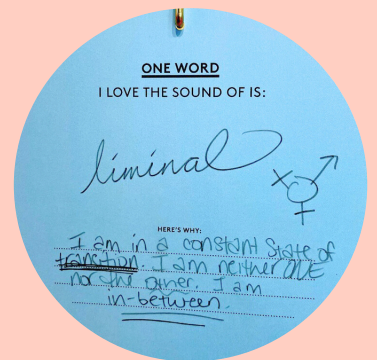 ONE WORD
I LOVE THE SOUND OF IS:
liminal
HERE'S WHY:
I am in a constant state of
transition. I am neither ONE
nor the other. I am
in-between.